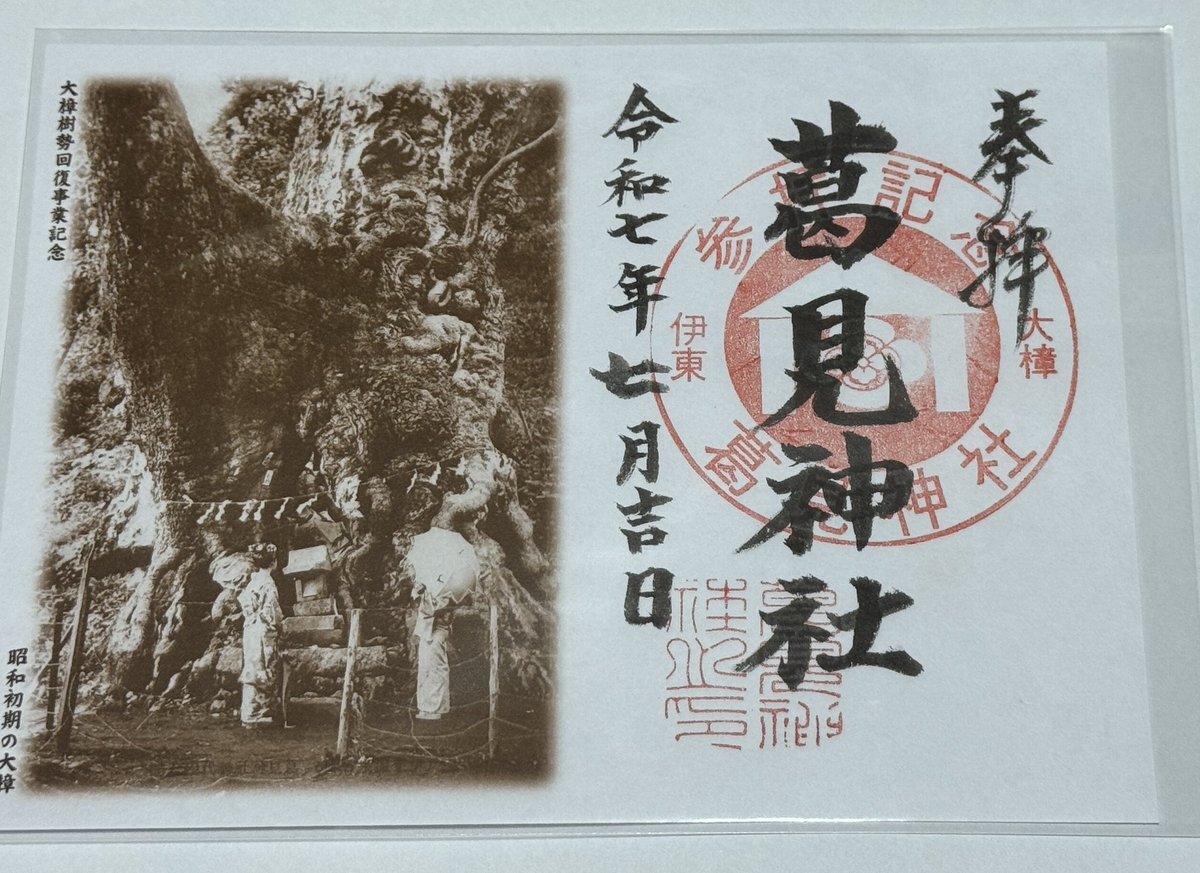 奉拝
葛見神社
令和七年七月吉日
参拝記念
伊東
大樟
葛見神社
大樟樹勢回復事業記念
昭和初期の大樟